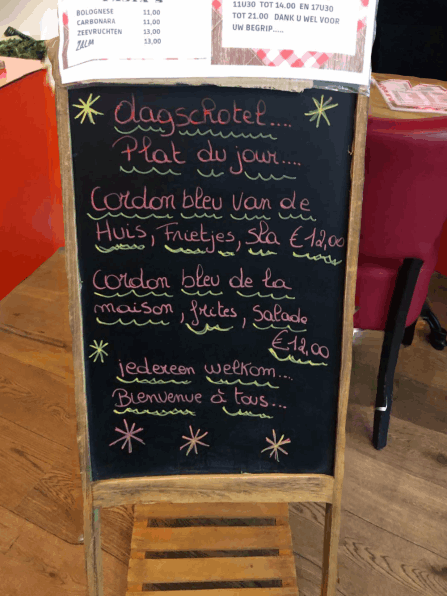 BOLOGNESE 11,00
CARBONARA 11,00
ZEEVRUCHTEN 13,00
ZALM 13,00
11U30 TOT 14.00 EN 17U30
TOT 21.00 DANK U WEL VOOR
UW BEGRIP.....
dagschotel....
Plat du jour....
Cordon bleu van de
Huis, Frietjes, sla €12,00
Cordon bleu de la
maison, frites, salade
€12,00
iedereen welkom...
Bienvenue à tous...